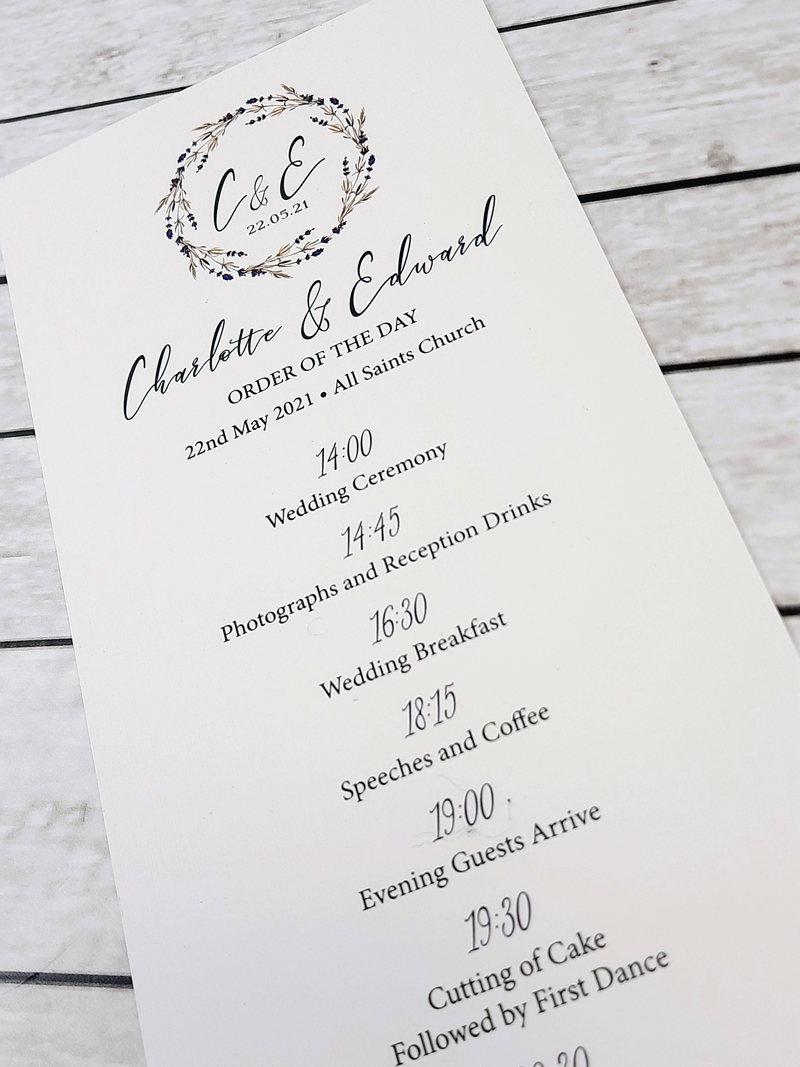 C & E
22.05.21
Charlotte & Edward
ORDER OF THE DAY
22nd May 2021 • All Saints Church
14:00
Wedding Ceremony
14:45
Photographs and Reception Drinks
16:30
Wedding Breakfast
18:15
Speeches and Coffee
19:00
Evening Guests Arrive
19:30
Cutting of Cake
Followed by First Dance